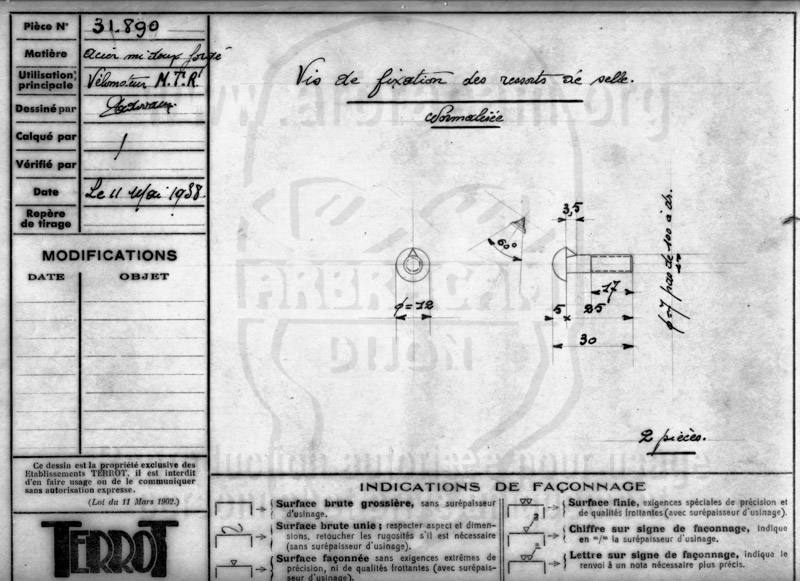 Pièce N° 31.890
Matière acier mi doux forgé
Utilisation principale Vélomoteur M.T.R.
Dessiné par
Calqué par /
Vérifié par
Date Le 11 Mai 1938
Repère de tirage
MODIFICATIONS
DATE OBJET
Ce dessin est la propriété exclusive des
Etablissements TERROT, il est interdit
d'en faire usage ou de le communiquer
sans autorisation expresse.
(Loi du 11 Mars 1902.)
TERROT
Vis de fixation des ressorts de selle.
Normalisée
3,5
60°
φ=12
17
5 25
30
φ=7 pas de 100 à dr.
2 pièces.
ARBRACAM
DIJON
INDICATIONS DE FAÇONNAGE
Surface brute grossière, sans surépaisseur
d'usinage.
Surface brute unie; respecter aspect et dimen-
sions, retoucher les rugosités s'il est nécessaire
(sans surépaisseur d'usinage).
Surface façonnée sans exigences extrêmes de
précision, ni de qualités frottantes (avec surépais-
seur d'usinage).
Surface finie, exigences spéciales de précision et
de qualités frottantes (avec surépaisseur d'usinage).
Chiffre sur signe de faconnage, indique
en "/" la surépaisseur d'usinage.
Lettre sur signe de façonnage, indique le
renvoi à un nota nécessaire plus précis.